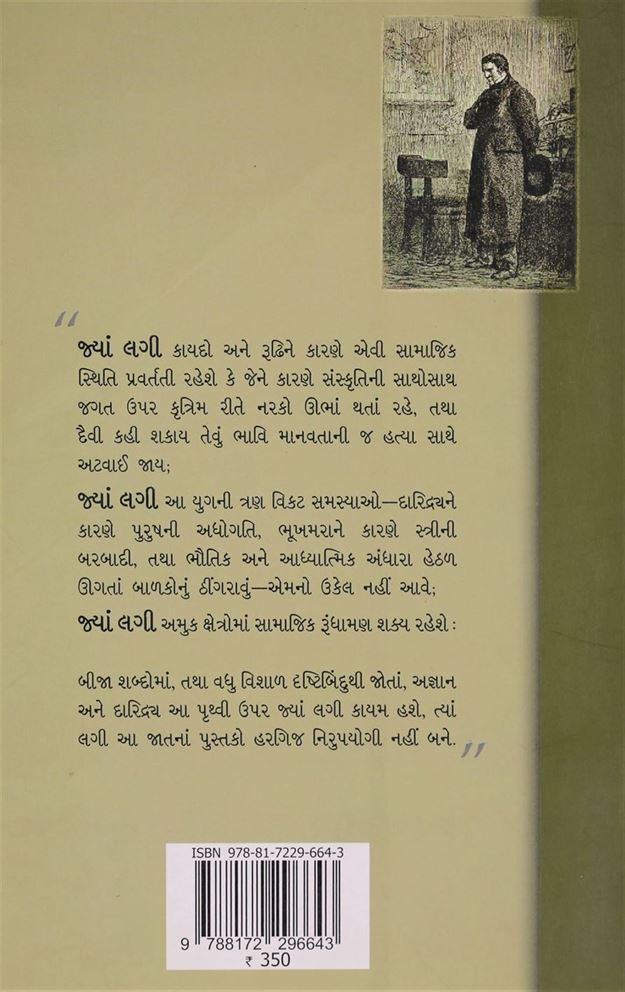 “
જ્યાં લગી કાયદો અને રૂઢિને કારણે એવી સામાજિક
સ્થિતિ પ્રવર્તતી રહેશે કે જેને કારણે સંસ્કૃતિની સાથોસાથ
જગત ઉપર કૃત્રિમ રીતે નરકો ઊભાં થતાં રહે, તથા
દૈવી કહી શકાય તેવું ભાવિ માનવતાની જ હત્યા સાથે
અટવાઈ જાય;
જ્યાં લગી આ યુગની ત્રણ વિકટ સમસ્યાઓ—દારિદ્ર્યને
કારણે પુરુષની અધોગતિ, ભૂખમરાને કારણે સ્ત્રીની
બરબાદી, તથા ભૌતિક અને આધ્યાત્મિક અંધારા હેઠળ
ઊગતાં બાળકોનું ઠીંગરાવું—એમનો ઉકેલ નહીં આવે;
જ્યાં લગી અમુક ક્ષેત્રોમાં સામાજિક રૂંધામણ શક્ય રહેશે :
બીજા શબ્દોમાં, તથા વધુ વિશાળ દૃષ્ટિબિંદુથી જોતાં, અજ્ઞાન
અને દારિદ્ર્ય આ પૃથ્વી ઉપર જ્યાં લગી કાયમ હશે, ત્યાં
લગી આ જાતનાં પુસ્તકો હરગિજ નિરુપયોગી નહીં બને. ”
ISBN 978-81-7229-664-3
9 788172 296643
₹ 350